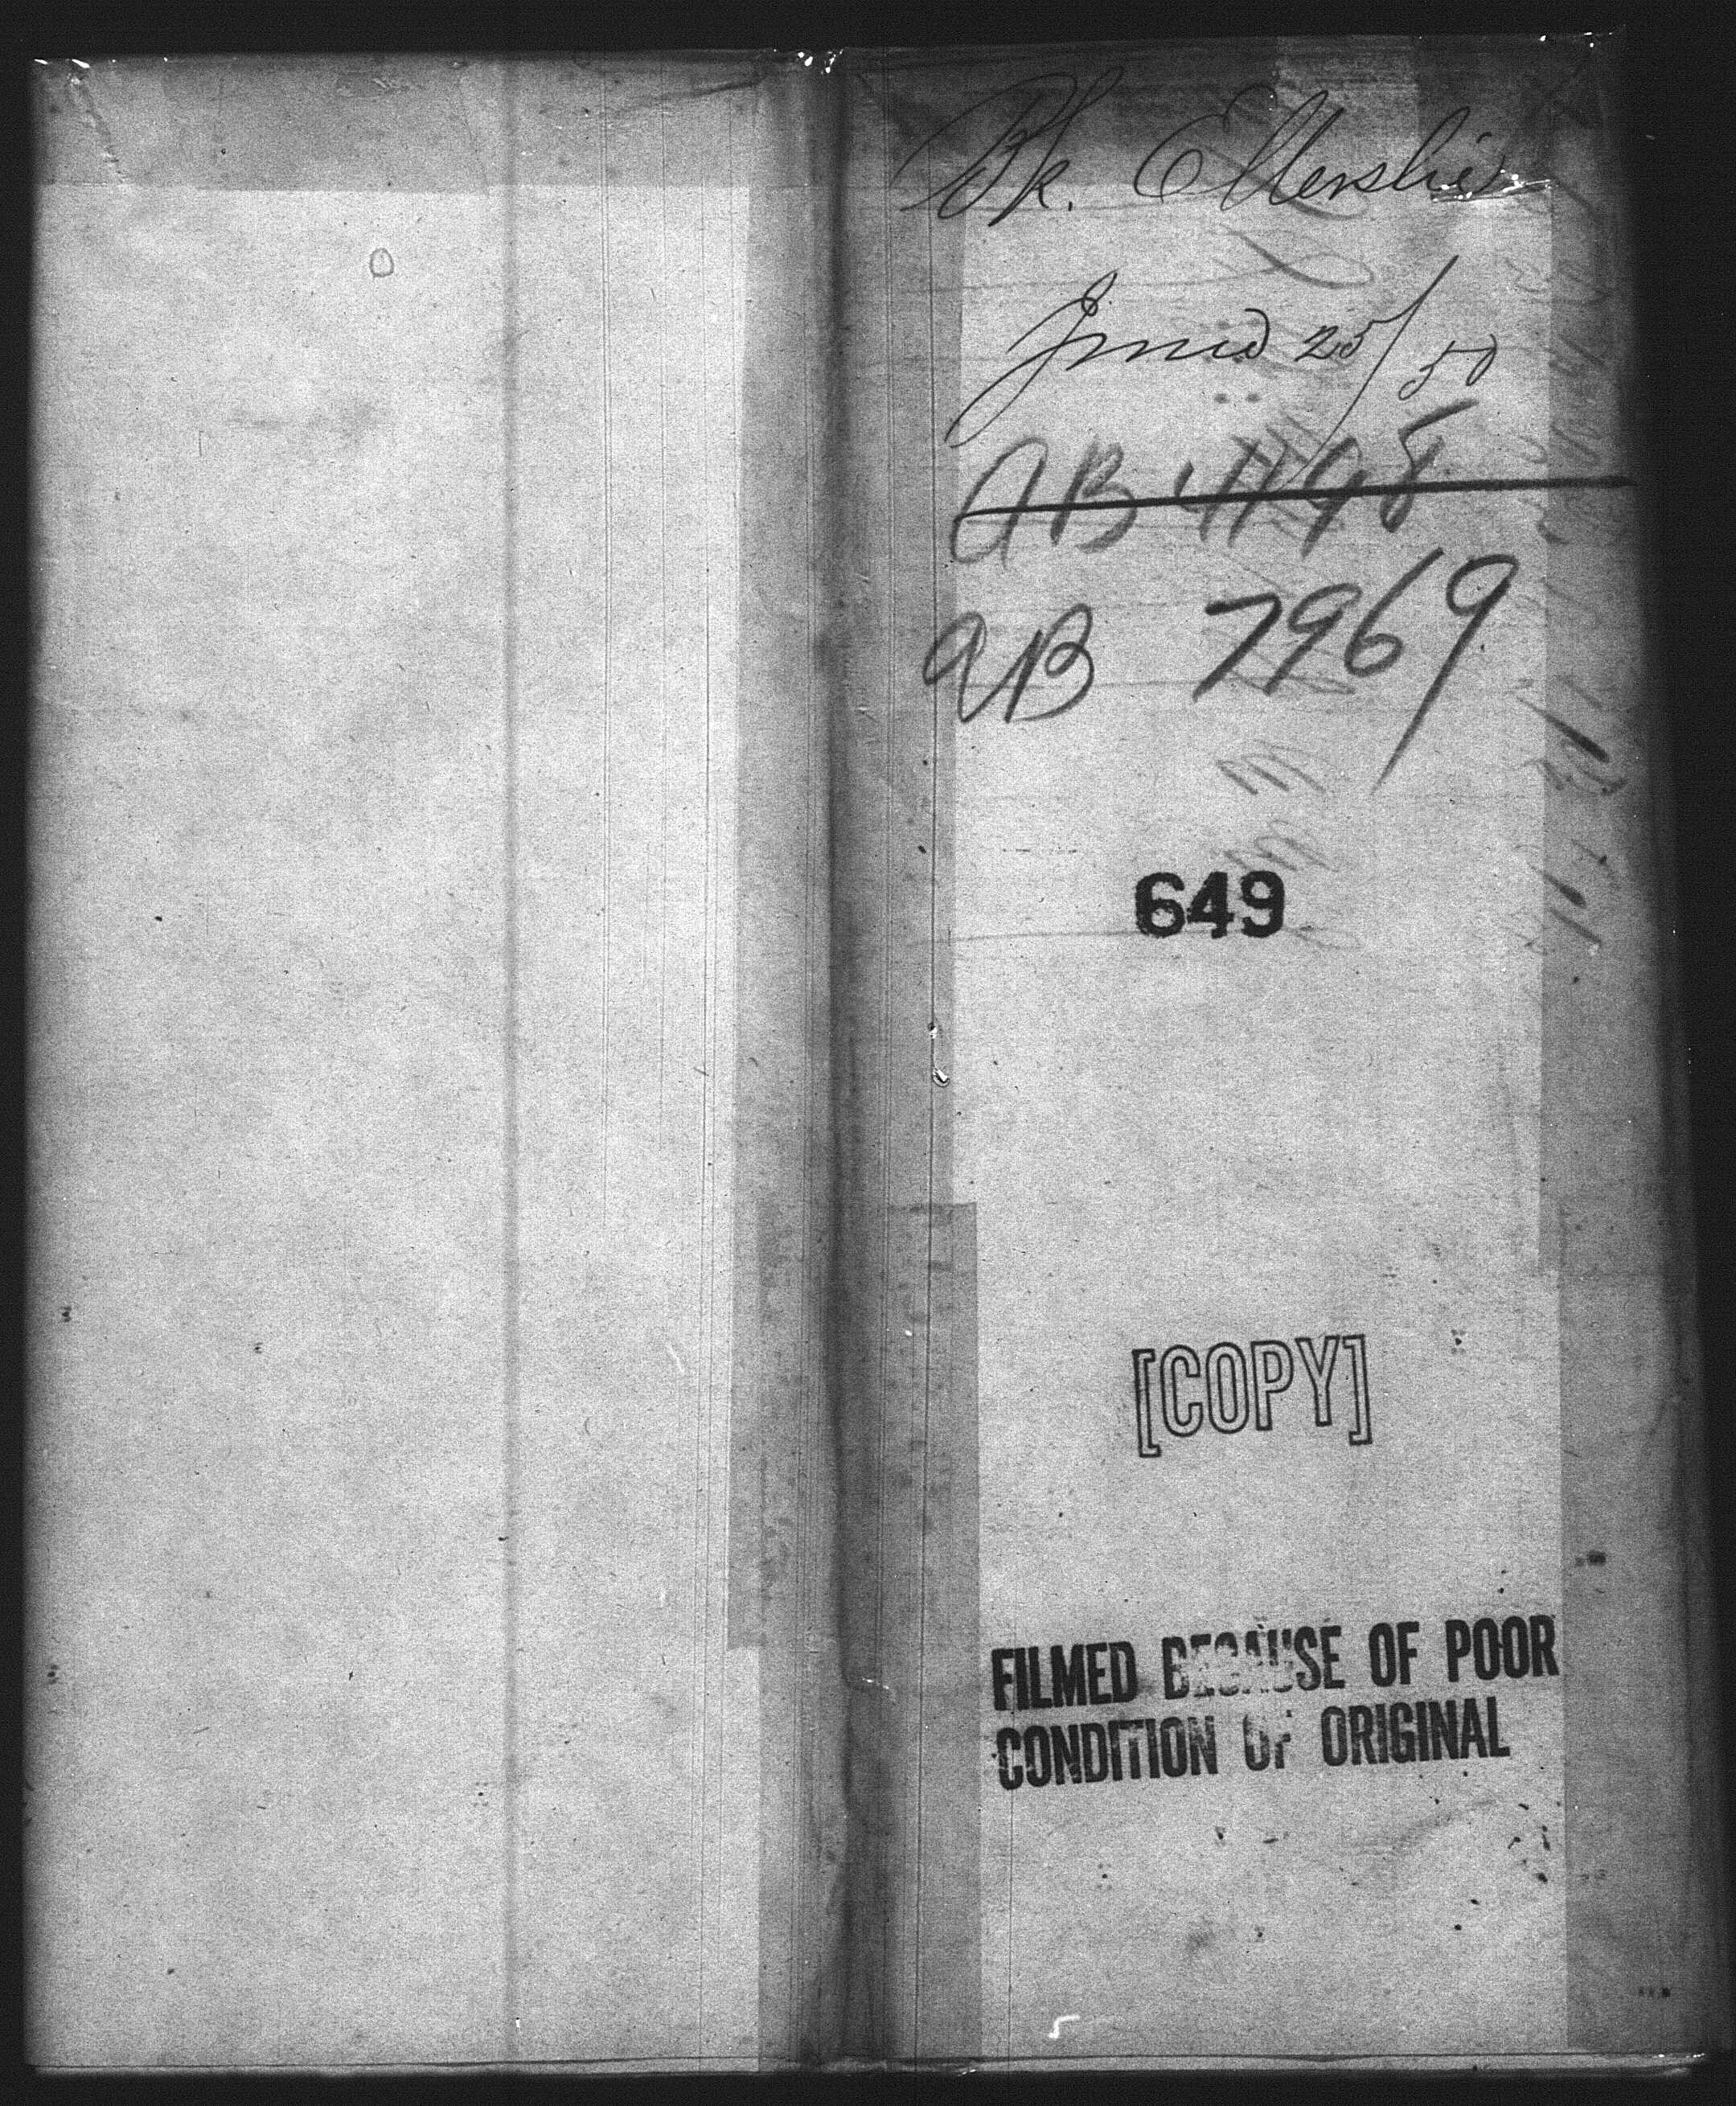 Bk. Ellerslie
June 25/50
AB 4198
AB 7969
649
[COPY]
FILMED BECAUSE OF POOR
CONDITION OF ORIGINAL